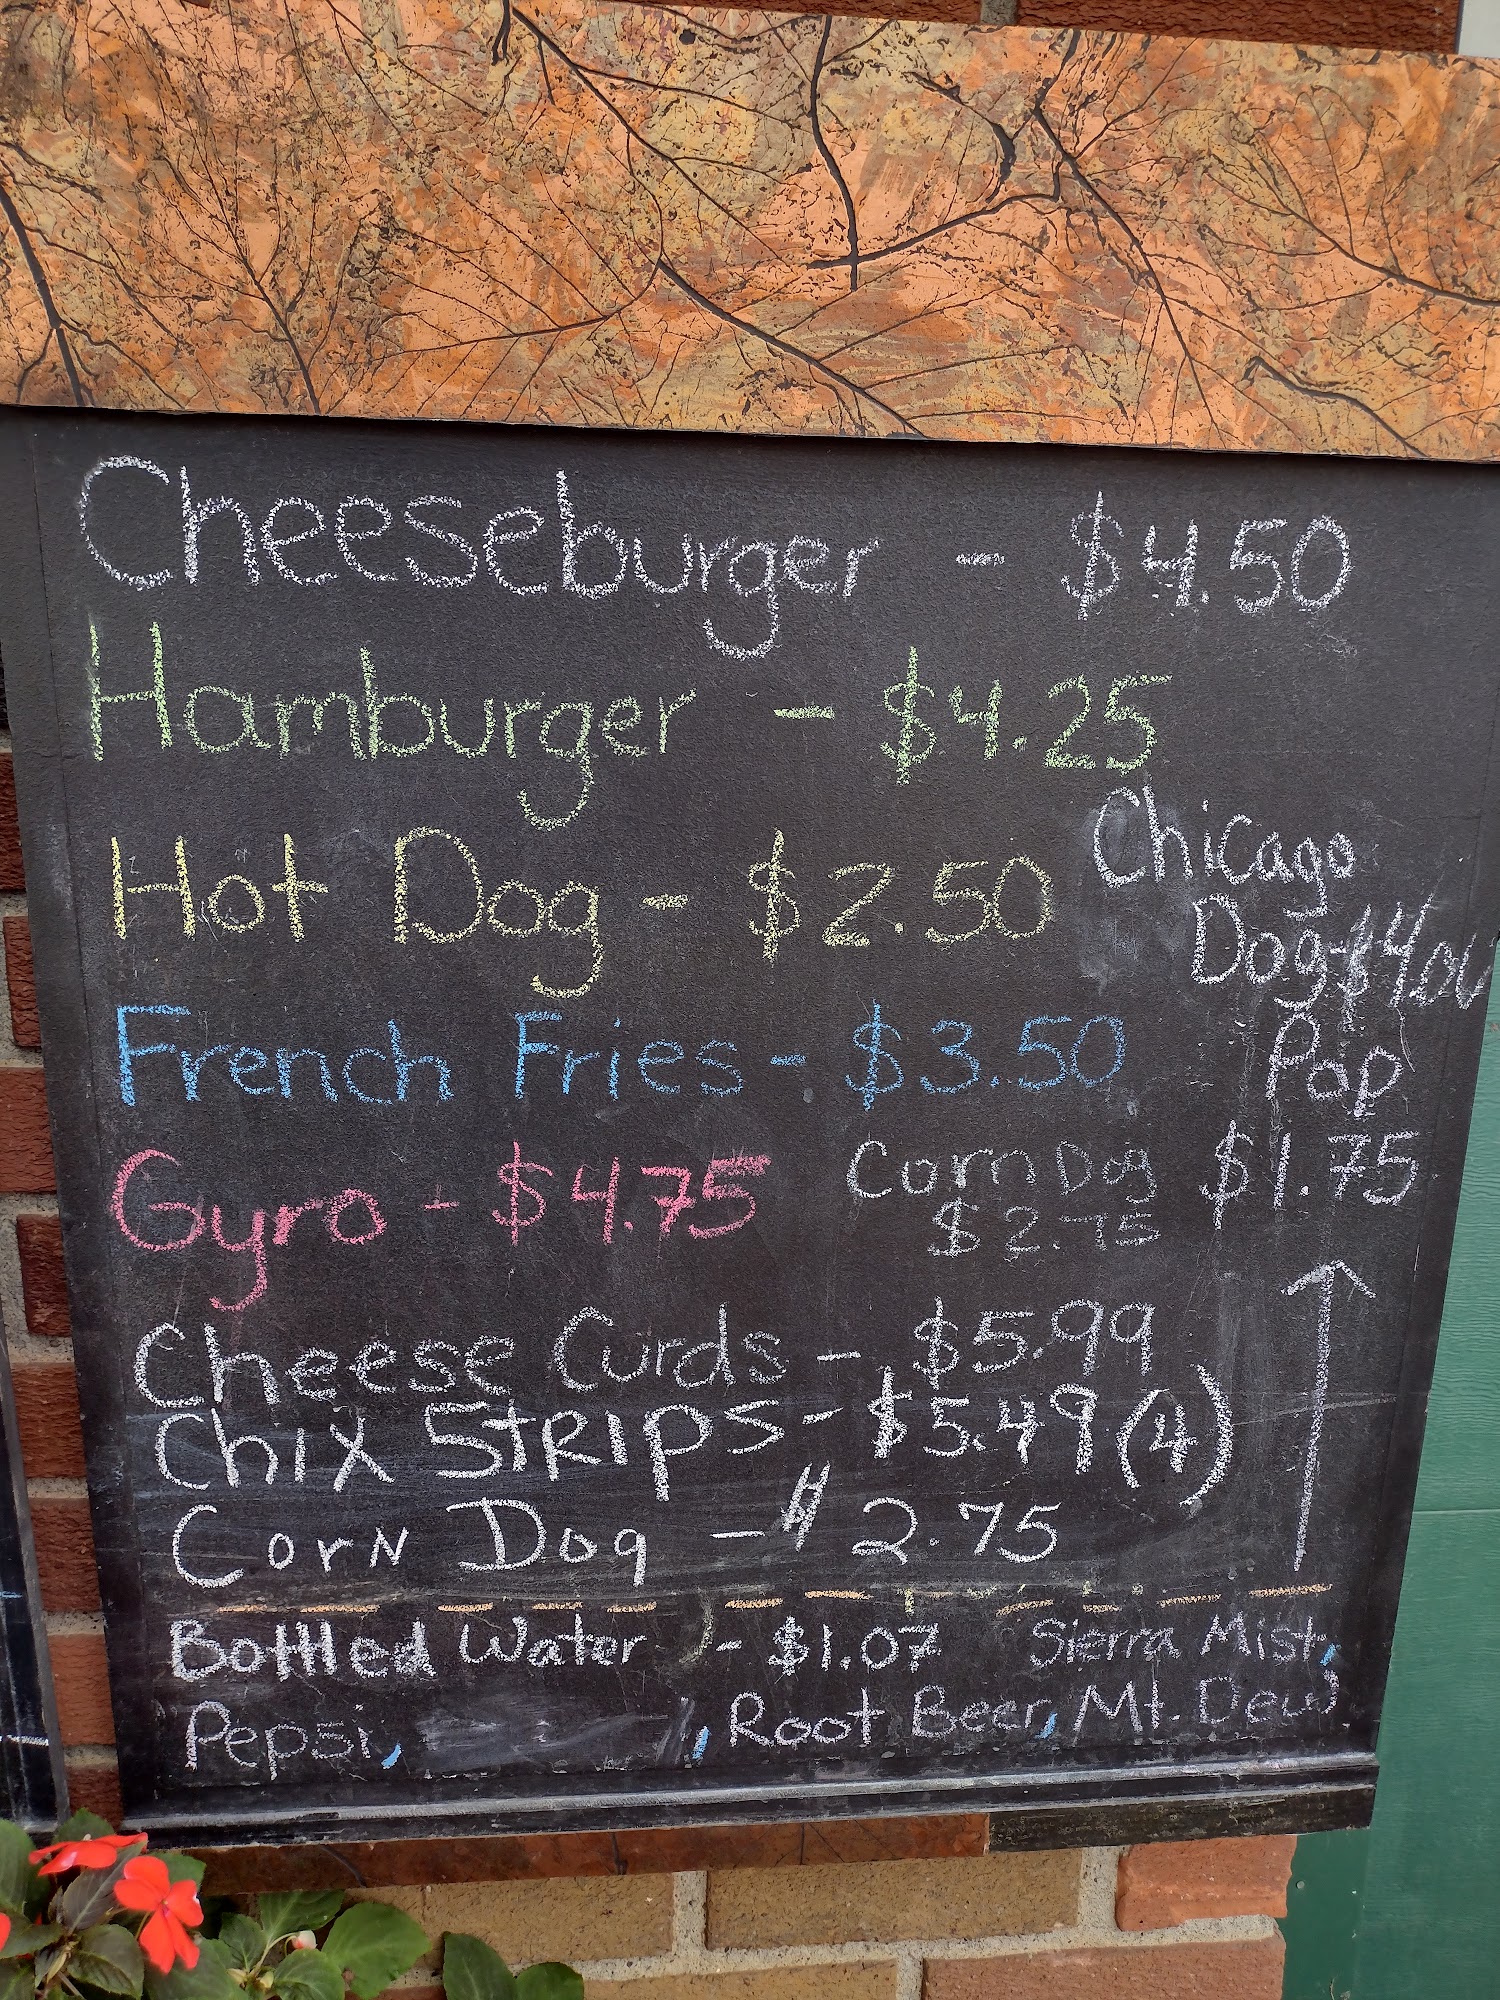 Cheeseburger - $4.50
Hamburger - $4.25
Hot Dog - $2.50
Chicago
Dog-$4.00
French Fries - $3.50
Pop
$1.75
Gyro - $4.75
Corn Dog
$2.75
Cheese Curds - $5.99
Chix STRIPS - $5.49 (4)
Corn Dog - $2.75
Bottled Water - $1.07 Sierra Mist,
Pepsi, , Root Beer, Mt. Dew